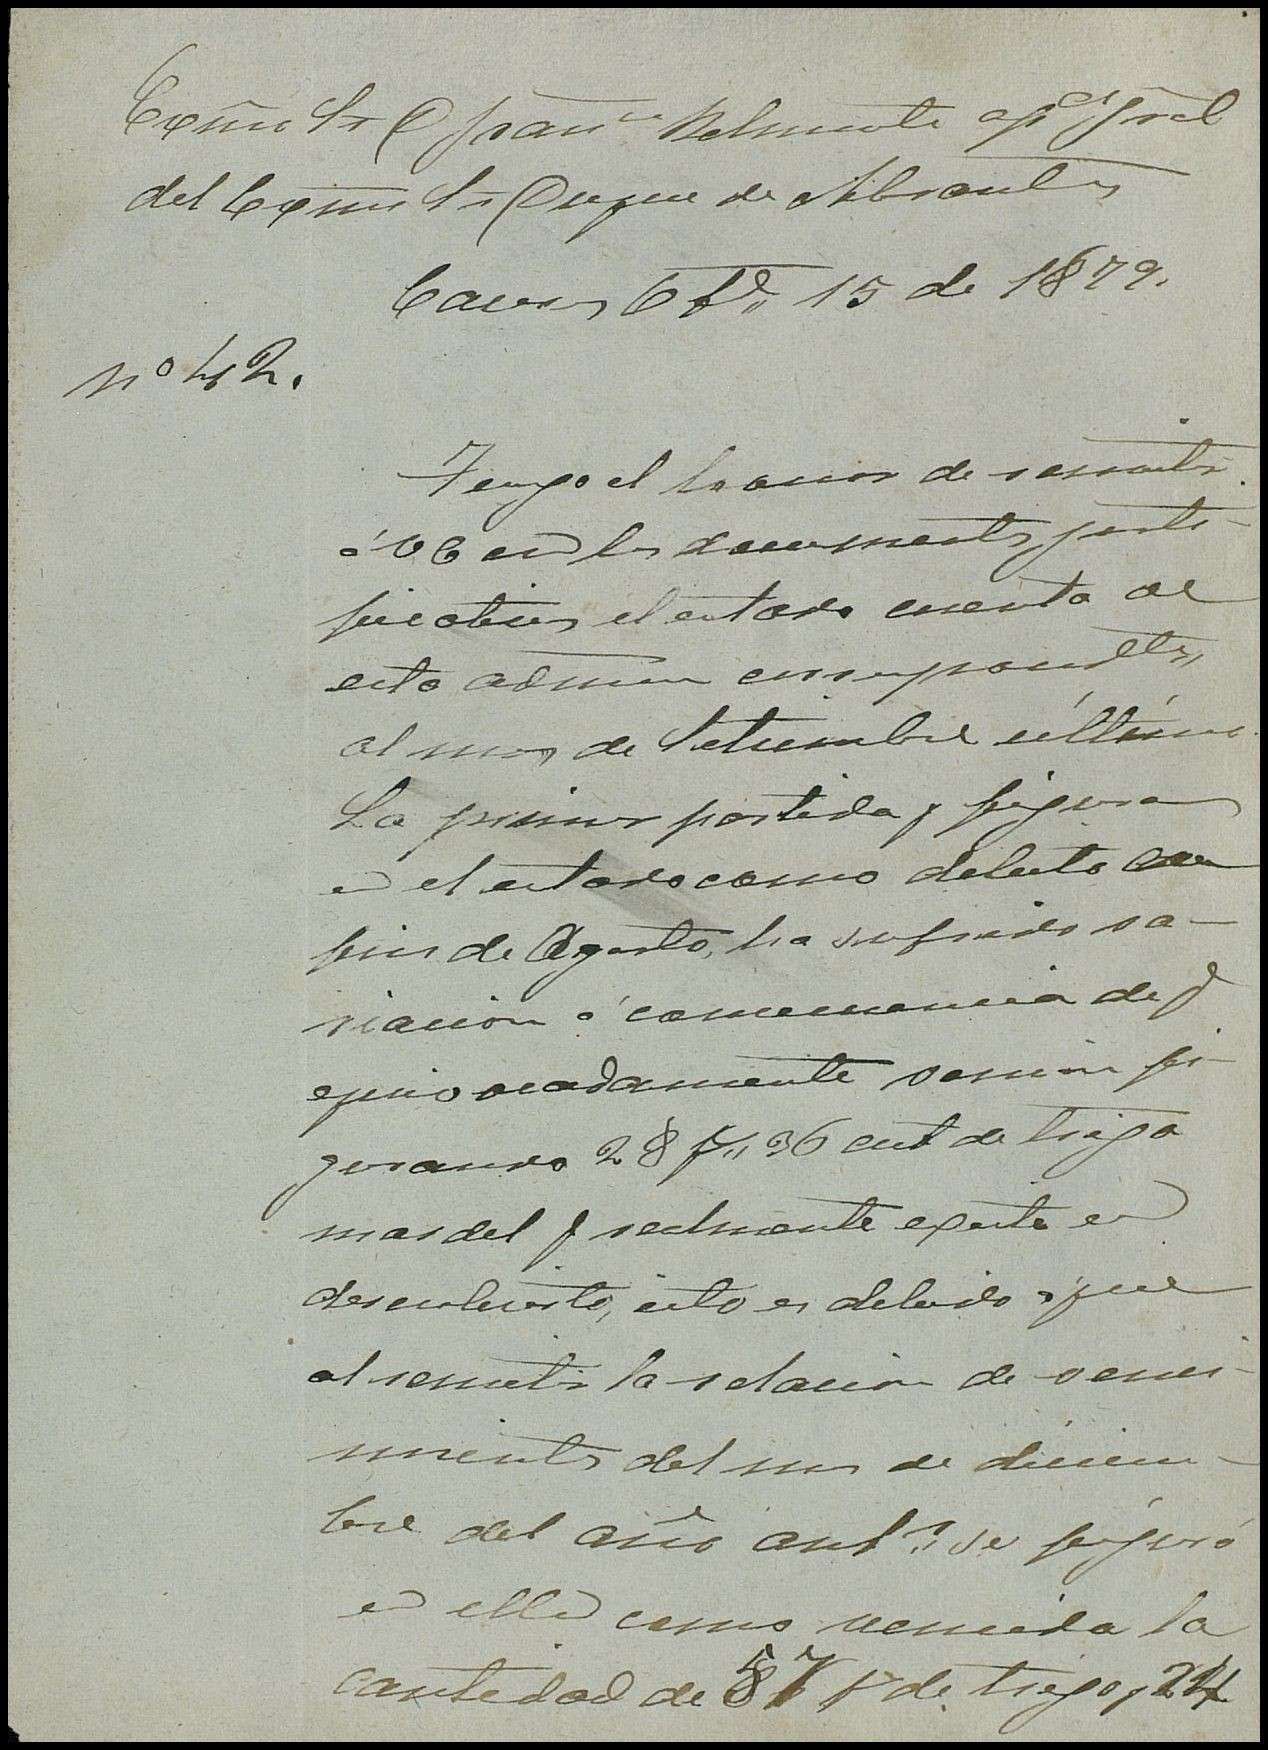 Excmo Sr D Franco Belmonte apdo Gral
del Excmo Sr Duque de Abrantes
Caceres Obre 15 de 1879.
nº 42.
Tengo el honor de remitir
á VE con los documentos justi-
ficativos el estado cuenta de
esta admon correspondte
al mes de Setiembre último.
La primer partida q figura
en el estado como debito en
fin de Agosto, ha sufrido va-
riacion á consecuencia de q
equivocadamente venian fi-
gurando 28 fs 36 cents de trigo
mas del q realmente existe en
descubierto, esto es debido a que
al remitir la relacion de venci-
mientos del mes de diciem-
bre del año antr se figuró
en ella como vencida la
cantidad de fs de trigo, 24